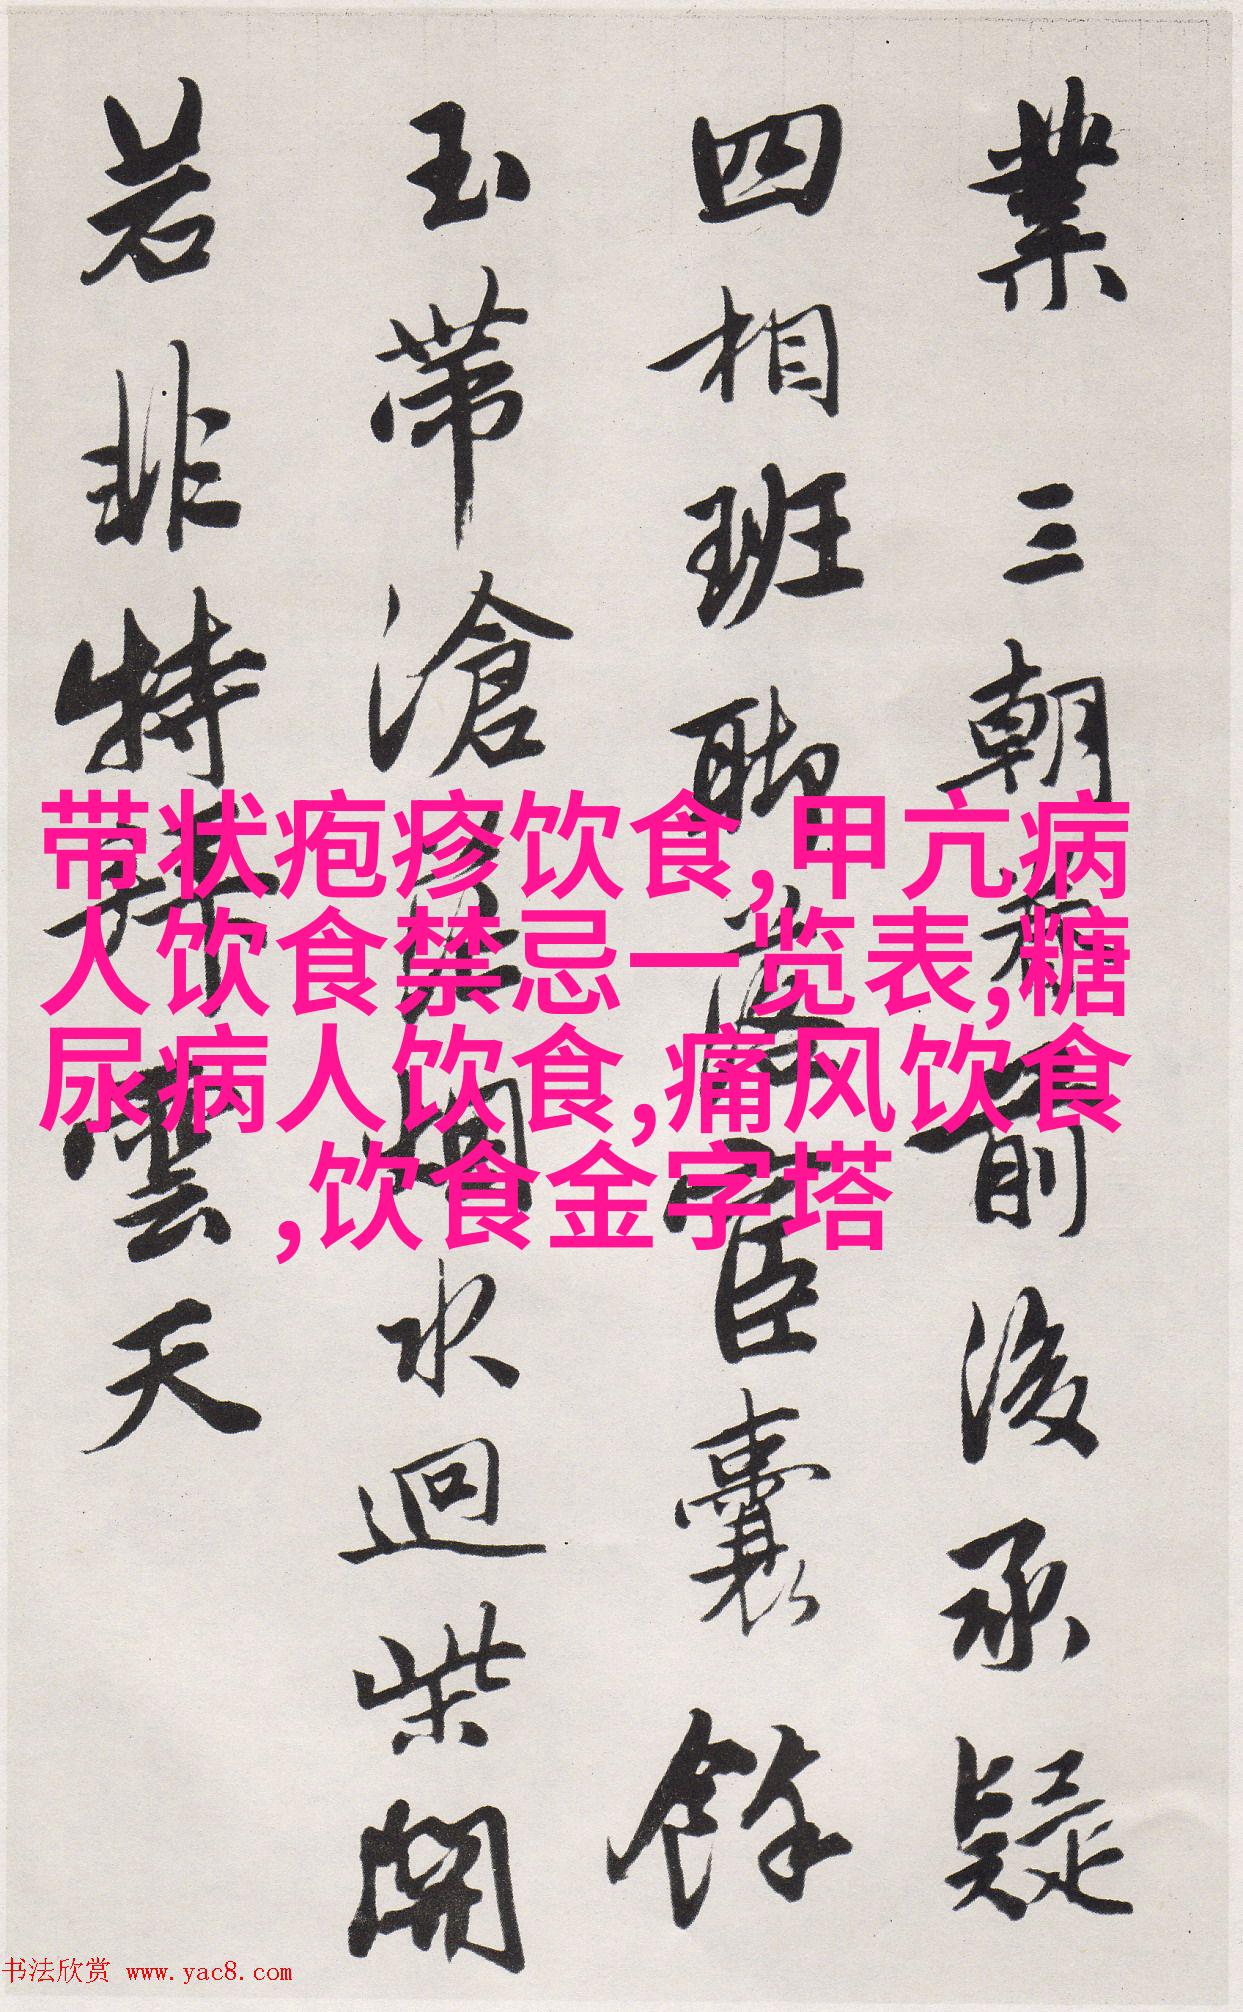 業 三朝前後承疑
四相班聯臣囊餘
玉帶滄水迴柴開
若非特雲天
带状疱疹饮食,甲亢病
人饮食禁忌一览表,糖
尿病人饮食,痛风饮食
,饮食金字塔
书法欣赏 www.yac8.com